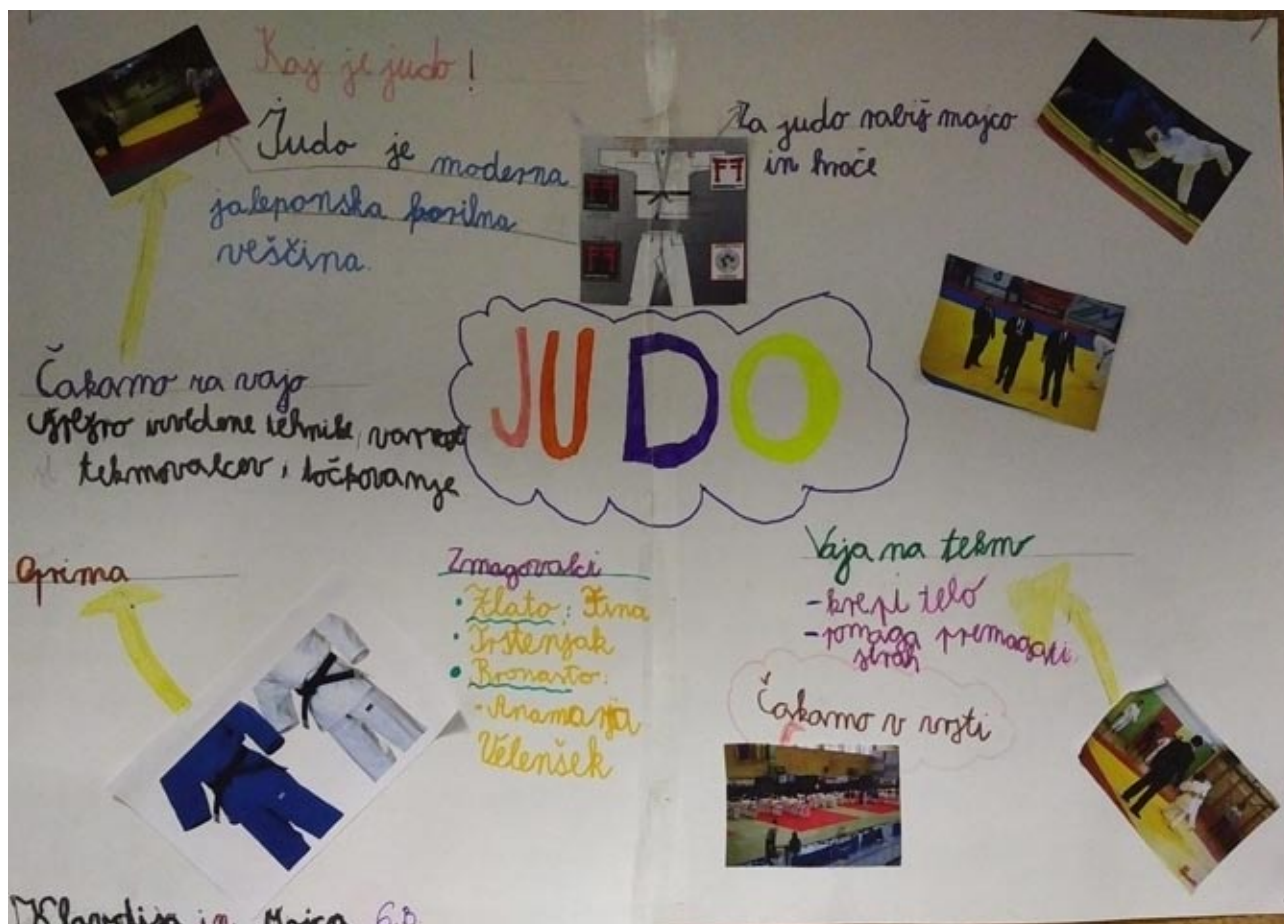 Kaj je judo!
Judo je moderna
jaleponska borilna
veščina.
Za judo rabiš majco
in hlače
JUDO
Čakamo na vajo
izvedene tehnike, varnost
tekmovalcev, točkovanje
Oprima
Zmagovalci
• Zlato: Tina
• Trstenjak
• Bronasto:
- Anamarija
Velenšek
Vaja na tekmo
- krepi telo
- pomaga premagati
strah
Čakamo v vrsti
Klavdija in 6.B